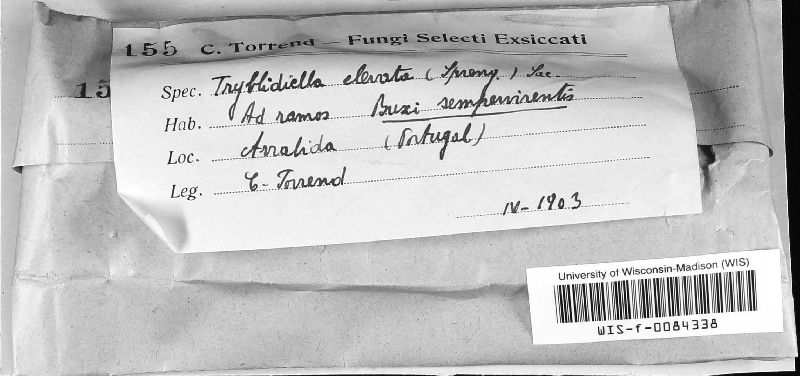 155 C. Torrend — Fungi Selecti Exsiccati
15
Spec. Tryblidiella elevata (Spreng.) Sac.
Hab. Ad ramos Buxi sempervirentis
Loc. Arrabida (Portugal)
Leg. C. Torrend
IV-1903
University of Wisconsin-Madison (WIS)
WIS-f-0084338